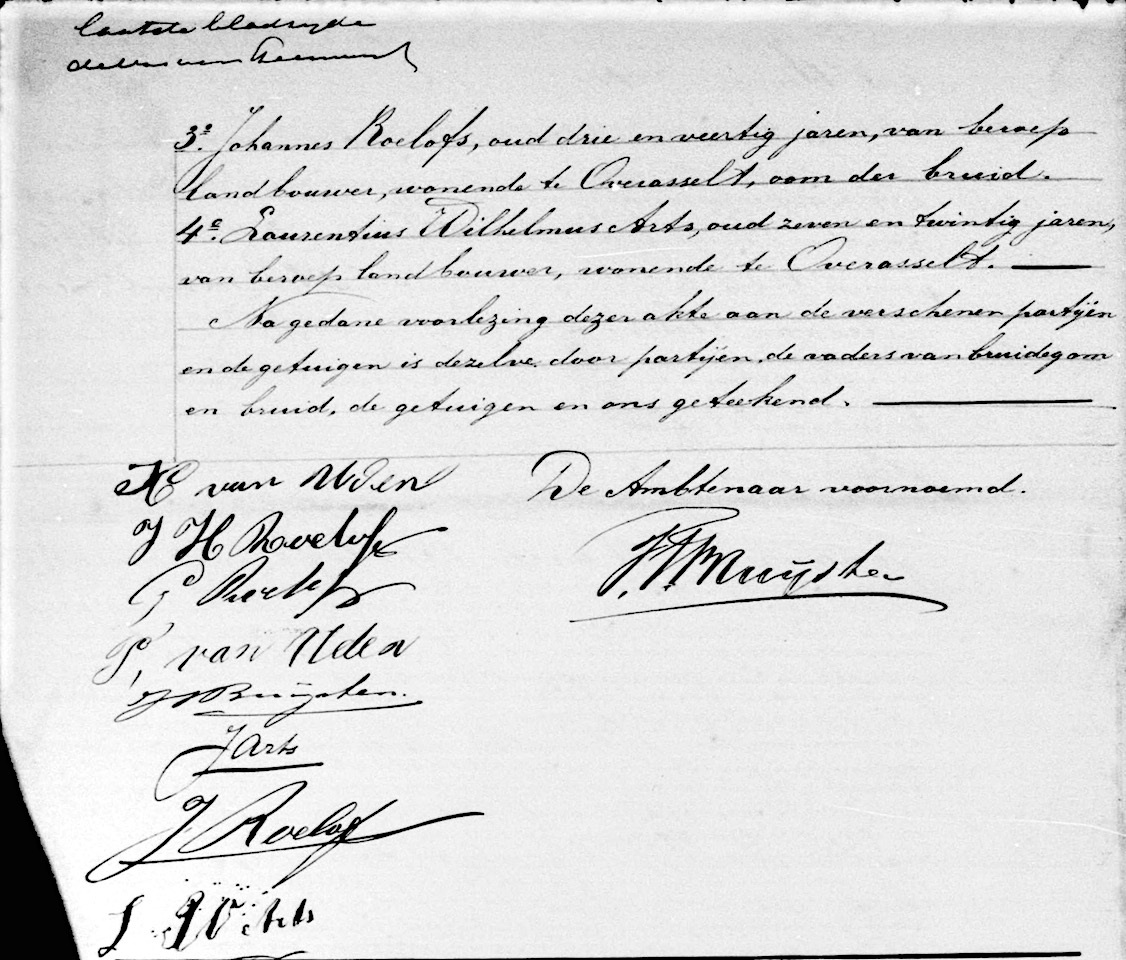 laatste bladzyde
3º. Johannes Roelofs, oud drie en veertig jaren, van beroep
landbouwer, wonende te Overasselt, oom der bruid.
4º. Laurentius Wilhelmus Arts, oud zeven en twintig jaren,
van beroep landbouwer, wonende te Overasselt.
Na gedane voorlezing dezer akte aan de verschenen partijen
en de getuigen is dezelve door partijen, de vaders van bruidegom
en bruid, de getuigen en ons geteekend.
H van Uden
De Ambtenaar voornoemd.
J H Roelofs
G Roelofs
P, van Uden
Bruijsten.
J Arts
J Roelofs
L W Arts